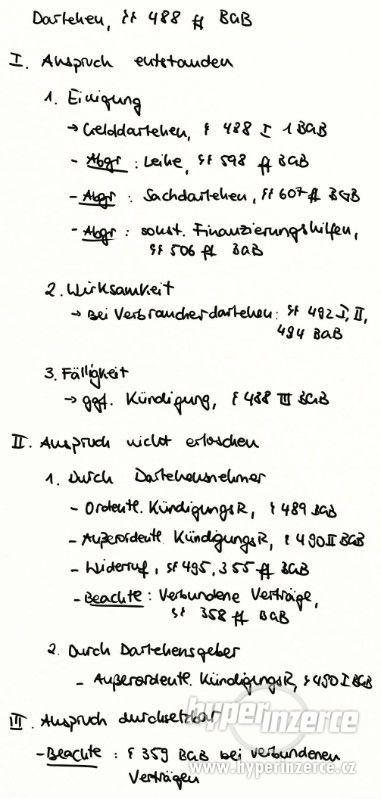 Darlehen, §§ 488 ff BGB
I. Anspruch entstanden
1. Einigung
→ Gelddarlehen, § 488 I 1 BGB
- Abgr: Leihe, §§ 598 ff BGB
- Abgr: Sachdarlehen, §§ 607 ff BGB
- Abgr: sonst. Finanzierungshilfen,
§§ 506 ff BGB
2. Wirksamkeit
→ Bei Verbraucherdarlehen: §§ 492 I, II,
494 BGB
3. Fälligkeit
→ ggf. Kündigung, § 488 III BGB
II. Anspruch nicht erloschen
1. Durch Darlehensnehmer
- Ordentl. KündigungsR, § 489 BGB
- Außerordentl KündigungsR, § 490 II BGB
- Widerruf, §§ 495, 355 ff BGB
- Beachte: Verbundene Verträge,
§§ 358 ff BGB
2. Durch Darlehensgeber
- Außerordentl. KündigungsR, § 490 I BGB
III. Anspruch durchsetzbar
- Beachte: § 359 BGB bei verbundenen
Verträgen
hyperinzerce
www.hyperinzerce.cz